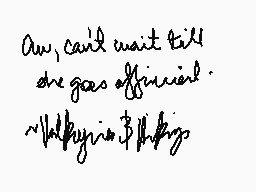 Aw, can't wait till
she goes official.
~Valkyrie & Vikings